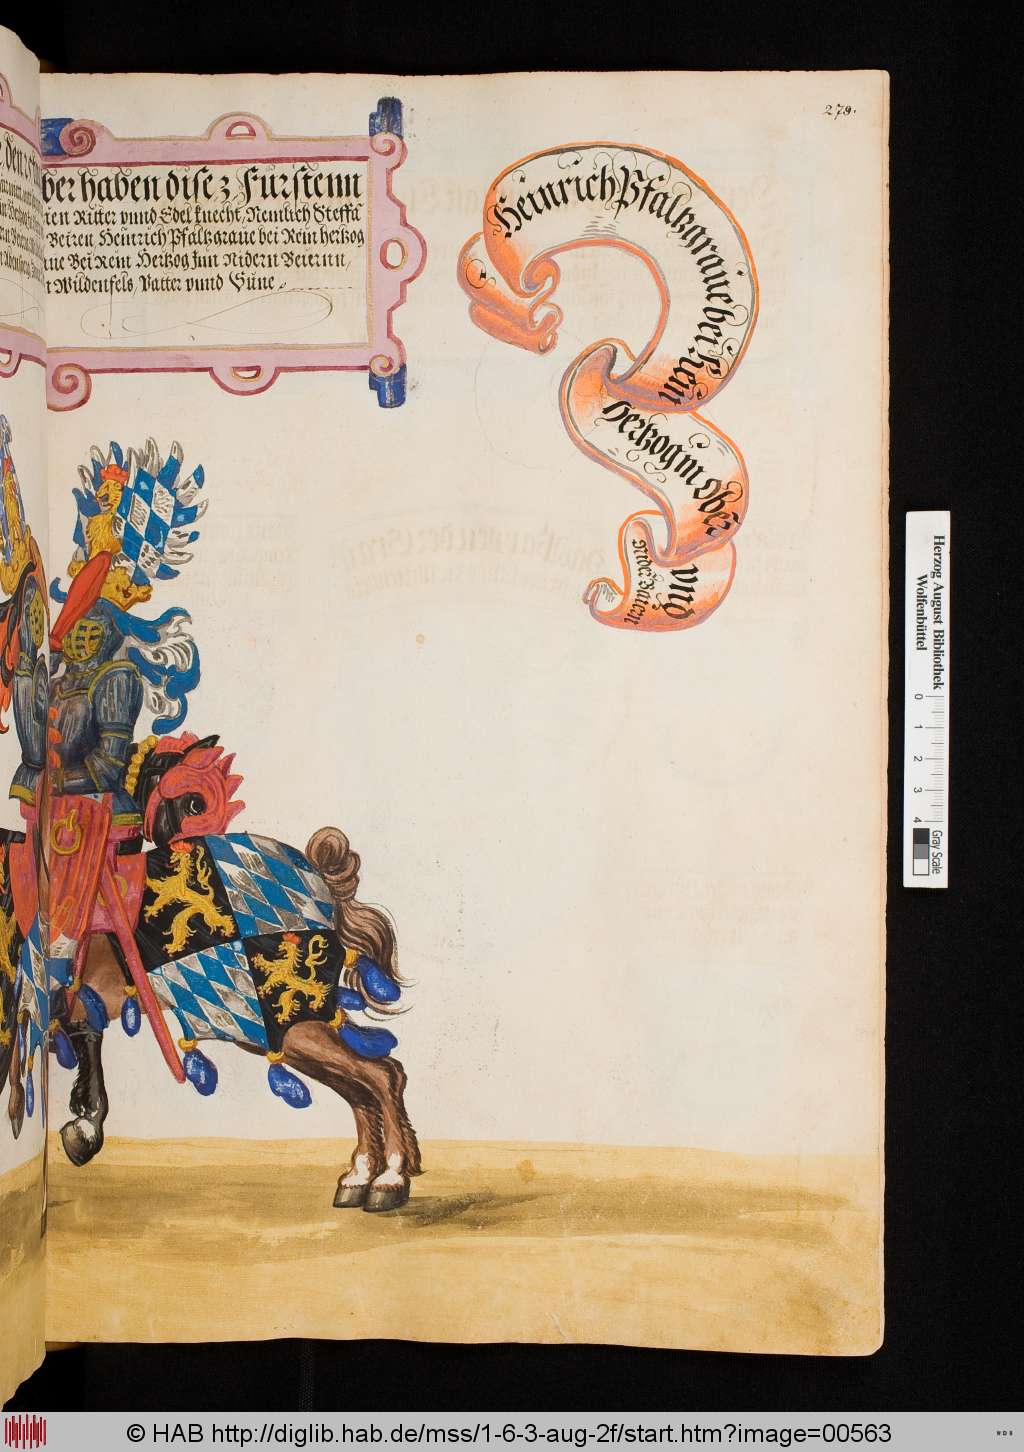 279.
ber haben dise 3 Fürstenn
ien Ritter vnnd Edel knecht, Nemlich Steffã
Beiren Heinrich Pfaltzgraue bei Rein hertzog
aue Bei Rein Hertzog Inn Nidern Beiernn,
Wildenfels, Vatter vnnd Süne
Heinrich Pfaltzgraue bei Rein
Hertzog in Ober
vnd
Nider Baiern
Herzog August Bibliothek
Wolfenbüttel
0 1 2 3 4
Gray Scale
© HAB http://diglib.hab.de/mss/1-6-3-aug-2f/start.htm?image=00563